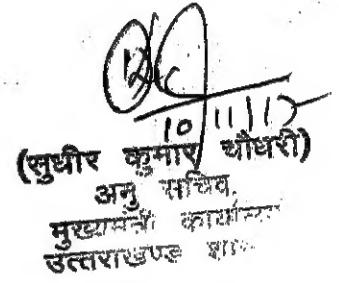 10/11/17
(सुधीर कुमार चौधरी)
अनु सचिव,
मुख्यमंत्री कार्यालय
उत्तराखण्ड